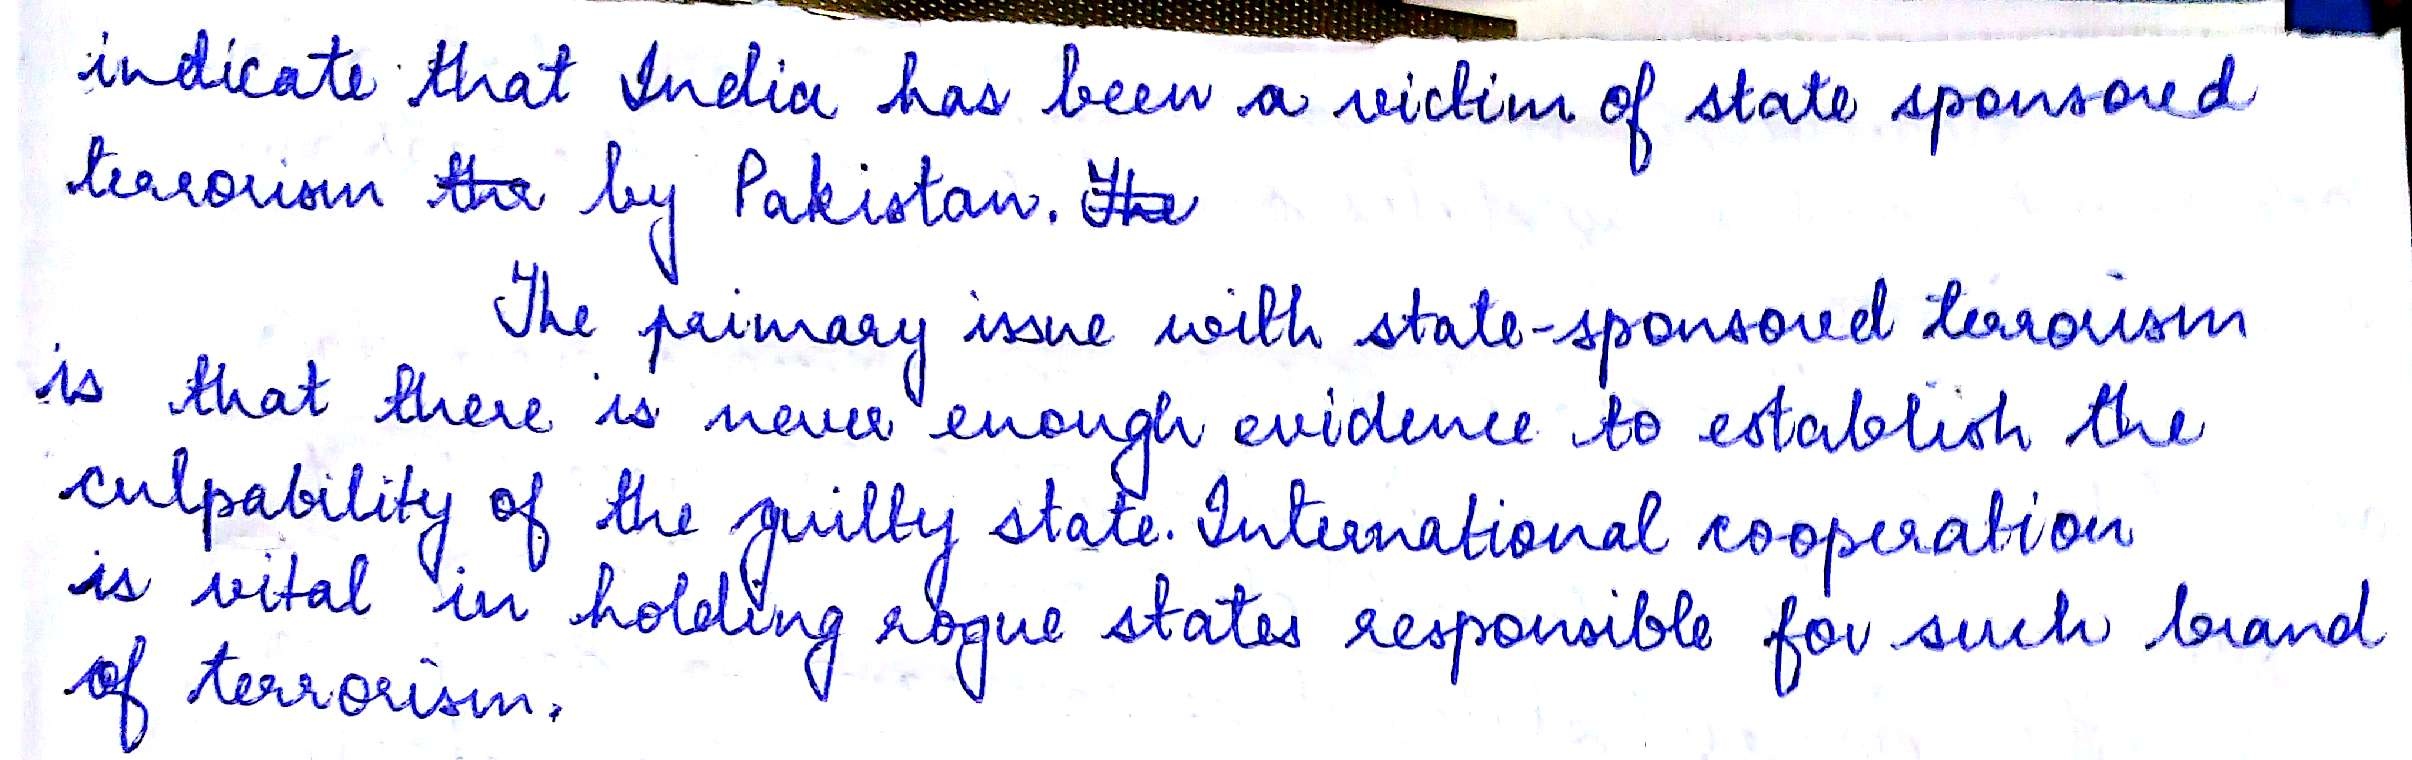 indicate that India has been a victim of state sponsored
terrorism the by Pakistan. The
The primary issue with state-sponsored terrorism
is that there is never enough evidence to establish the
culpability of the guilty state. International cooperation
is vital in holding rogue states responsible for such brand
of terrorism.